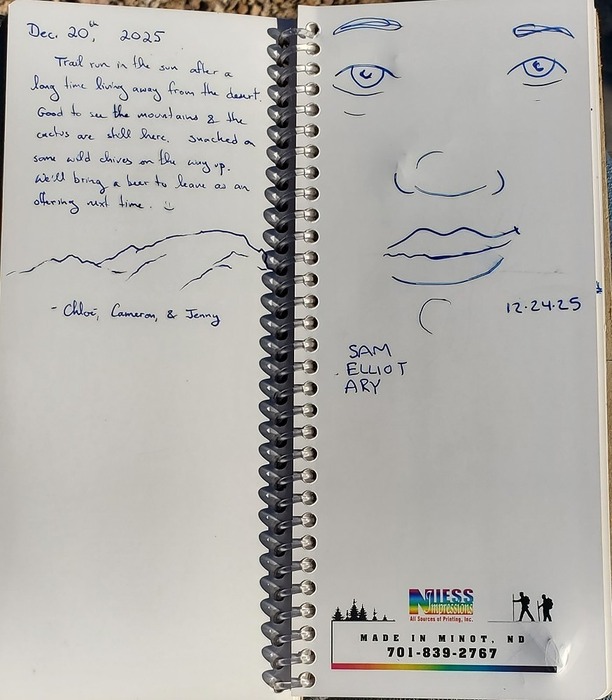 Dec. 20th, 2025
Trail run in the sun after a
long time living away from the desert.
Good to see the mountains & the
cactus are still here. Snacked on
some wild chives on the way up.
We'll bring a beer to leave as an
offering next time. :)
- Chloë, Cameron, & Jenny
12.24.25
SAM
ELLIOT
ARY
NIESS
Impressions
All Sources of Printing, Inc.
MADE IN MINOT, ND
701-839-2767